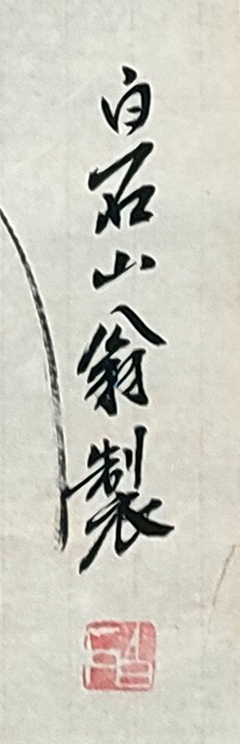 白石山翁製